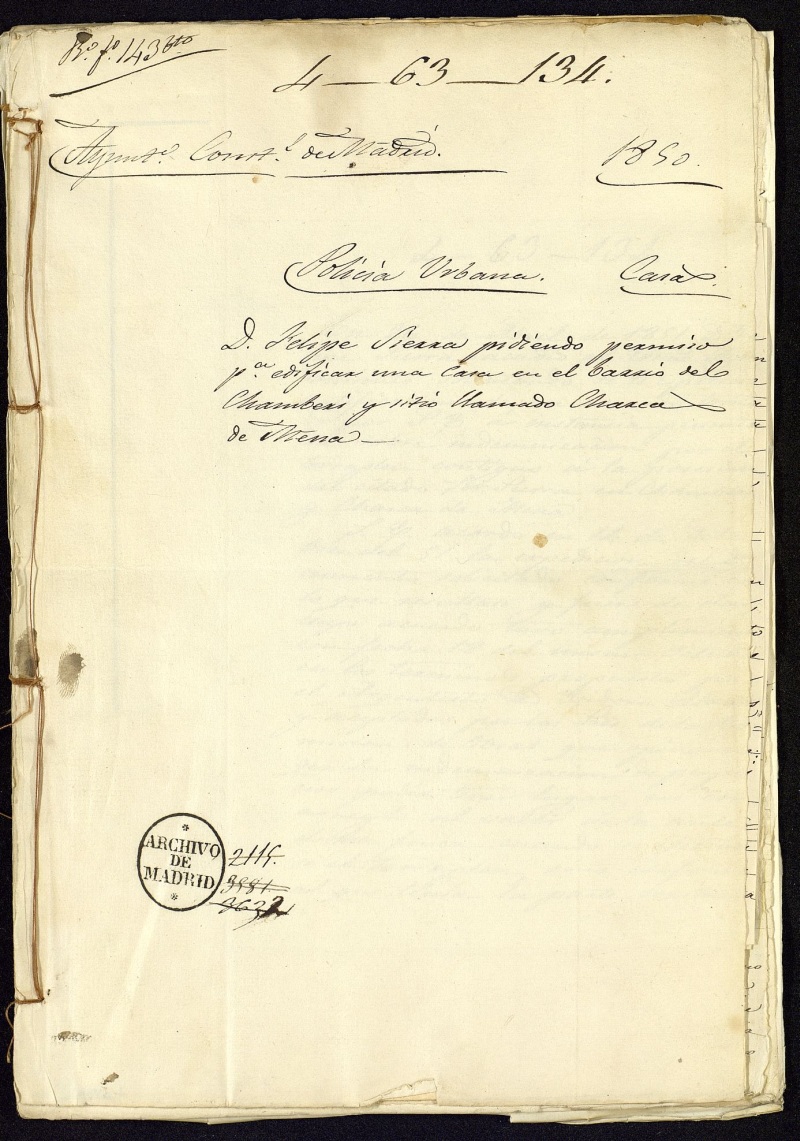 Rº. fº. 143 bto
4 — 63 — 134.
Ayuntº. Const.l de Madrid. 1850.
Policía Urbana. Casas.
D. Felipe Sierra pidiendo permiso
p.a edificar una Casa en el barrio del
Chamberi y sitio llamado Charca
de Mena —
ARCHIVO
DE
MADRID
2115.
3981.